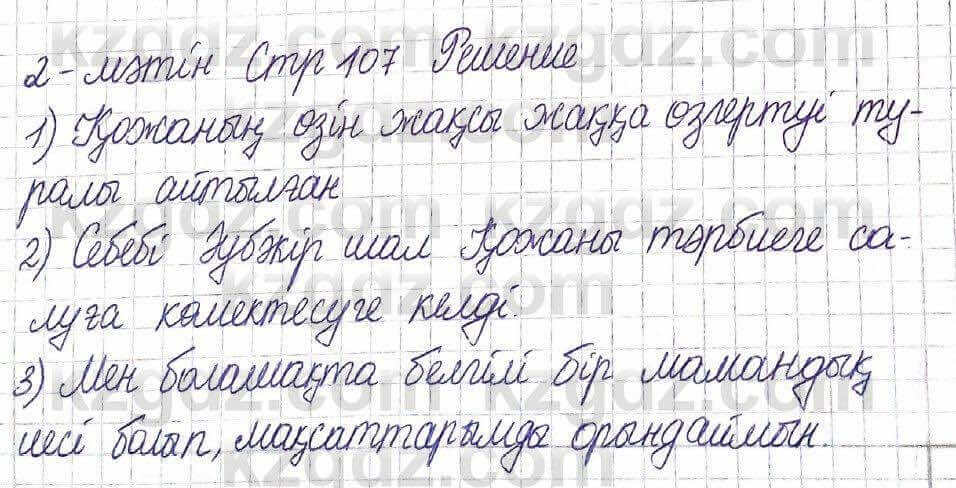 2-мәтін Стр 107 Решение
1) Қожаның өзін жақсы жаққа өзгертуі ту-
ралы айтылған
2) Себебі Зүбәжір шал Қожаны тәрбиеге са-
луға көмектесуге келді.
3) Мен болашақта белгілі бір мамандық
иесі болып, мақсаттарымды орындаймын.